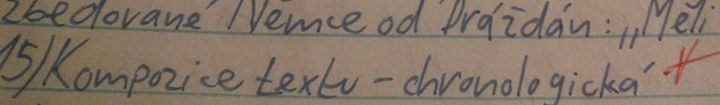 zbedované Němce od Drážďan: „Měli
15) Kompozice textu - chronologická